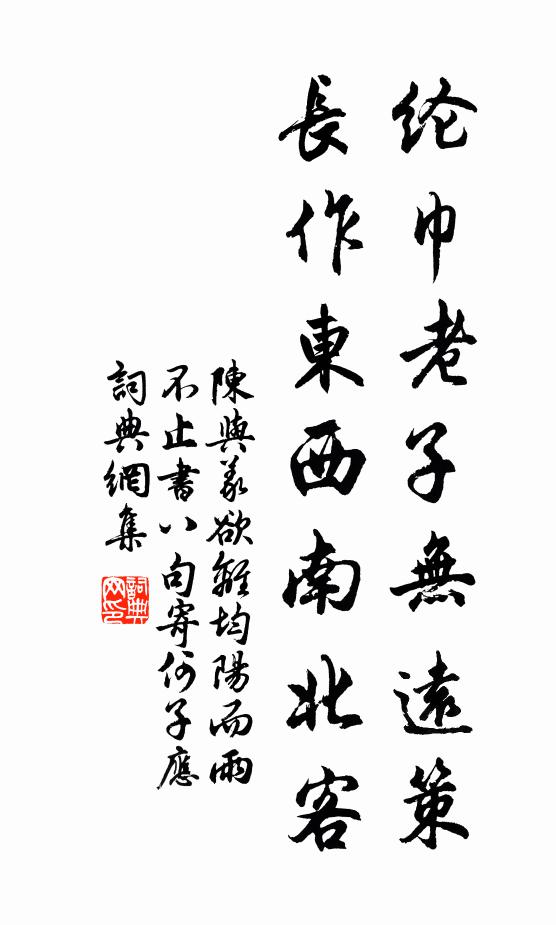 纶巾老子無遠策
長作東西南北客
陳與義欲離均陽而雨
不止書八句寄何子應
詞典網集
詞典
网印